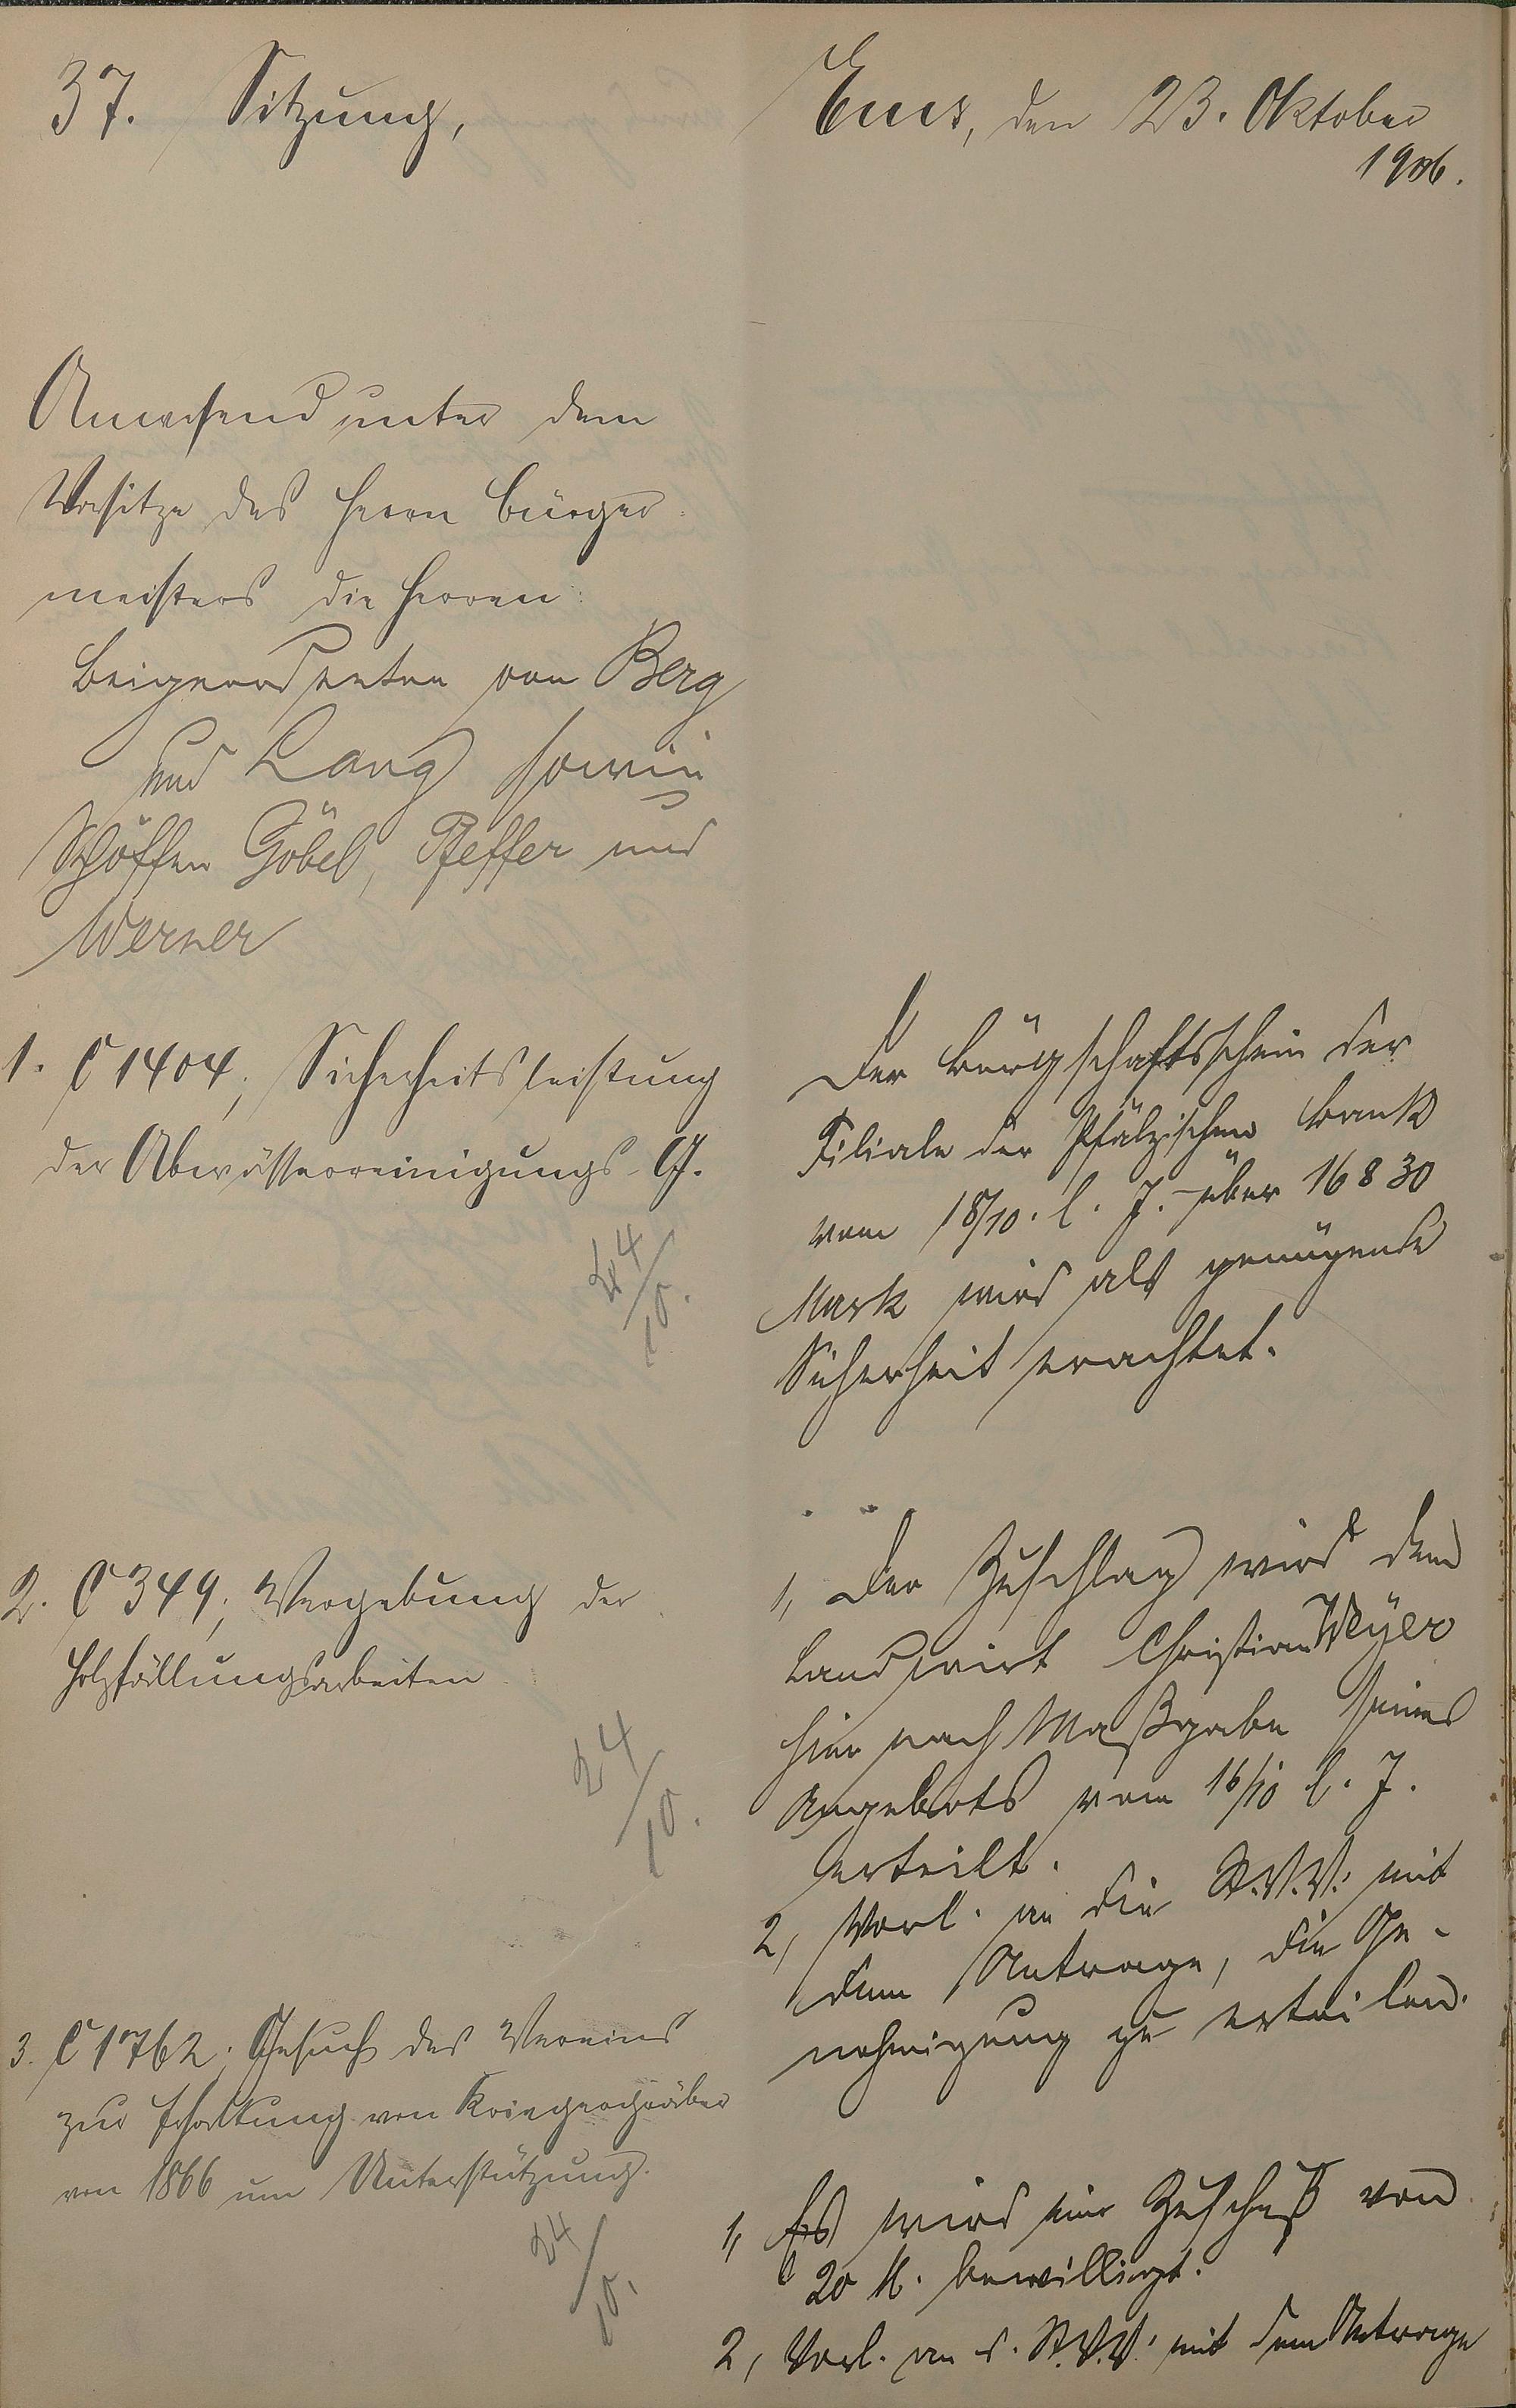 37. Sitzung,
Ems, den 23. Oktober
1906.
Anwesend unter dem
Vorsitze des Herrn Bürger-
meisters die Herren:
Beigeordneten von Berg
und Lang sowie
Schöffen Göbel, Pfeffer und
Werner
1. C 1404; Sicherheitsleistung
der Abwässerreinigungs-G.
24/10.
Der Bürgschaftsschein der
Filiale der Pfälzischen Bank
vom 18/10. l. J. über 16830
Mark wird als genügende
Sicherheit erachtet.
2. C 349; Vergebung der
Holzfällungsarbeiten
24/10.
1, Der Zuschlag wird dem
Landwirt Christian Weyer
hier nach Maßgabe seines
Angebots vom 16/10 l. J.
erteilt.
2, Vorl. an die St.V.V. mit
dem Antrage, die Ge-
nehmigung zu erteilen.
3. C 1762; Gesuch des Vereins
zur Erhaltung von Kriegergräber
von 1866 um Unterstützung.
24/10.
1, Es wird ein Zuschuß von
20 M. bewilligt.
2, Vorl. an d. St.V.V. mit dem Antrage